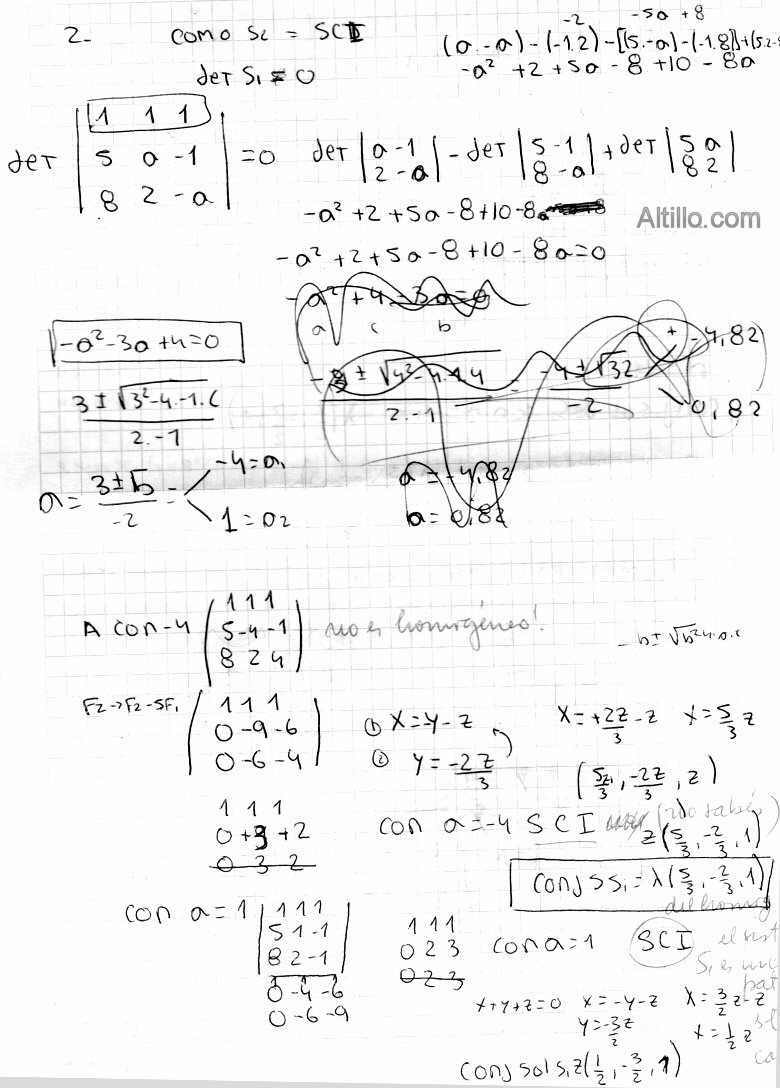 2.- COMO S₂ = SCI
det S₁ = 0
-2 -5a + 8
(a.-a) - (-1.2) - [(5.-a) - (-1.8)] + (5.2-8
-a² + 2 + 5a - 8 + 10 - 8a
det | 1 1 1 |
| 5 a -1 | = 0
| 8 2 -a |
det | a -1 | - det | 5 -1 | + det | 5 a |
| 2 -a | | 8 -a | | 8 2 |
Altillo.com
-a² + 2 + 5a - 8 + 10 - 8a
-a² + 2 + 5a - 8 + 10 - 8a = 0
-a² + 4 - 3a = 0
a c b
-a² - 3a + 4 = 0
3 ± √3² - 4.-1.c
2.-1
-4 ± √32
-2
+ -4,82
- 0,82
a = 3 ± 5
-2
-4 = a₁
1 = a₂
a = -4,82
a = 0,82
A con -4 ( 1 1 1 )
( 5 -4 -1 )
( 8 2 4 )
no es homogéneo!
-b ± √b² 4.a.c
F₂ → F₂ - 5F₁
( 1 1 1 )
( 0 -9 -6 )
( 0 -6 -4 )
① X = y - z
② y = -2z
3
X = +2z - z
3
X = 5 z
3
( 5z , -2z , z )
3 3
1 1 1
0 +3 +2
0 3 2
con a = -4 SCI
z ( 5 , -2 , 1 )
3 3
Conj S S₁ = λ ( 5 , -2 , 1 )
3 3
del homog
con a = 1 | 1 1 1 |
| 5 1 -1 |
| 8 2 -1 |
0 -4 -6
0 -6 -9
1 1 1
0 2 3
0 2 3
con a = 1 SCI
el sist
S₁ es una
x + y + z = 0 x = -y - z X = 3 z - z
2
y = -3 z
2
x = 1 z
2
Conj sol S₁ z ( 1 , -3 , 1 )
2 2